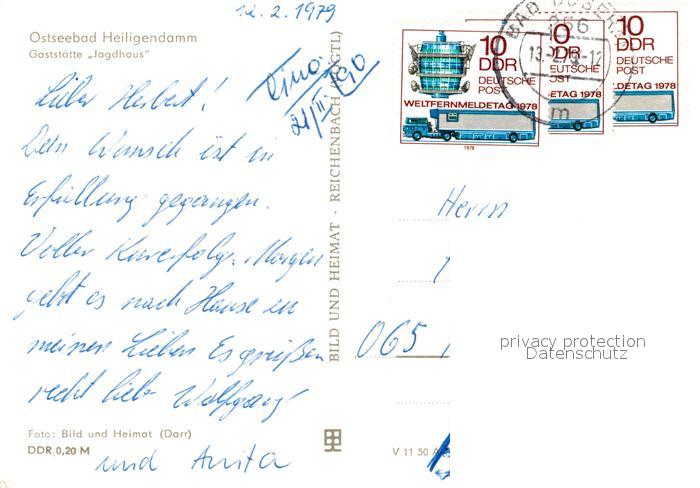 12.2.1979
Ostseebad Heiligendamm
Gaststätte „Jagdhaus"
Lieber Herbert!
Dein Wunsch ist in
Erfüllung gegangen.
Voller Kurerfolg. Morgen
geht es nach Hause zu
meinen Lieben. Es grüßen
recht lieb Wolfgang
und Anita
Foto: Bild und Heimat (Darr)
DDR 0,20 M
21/II
BILD UND HEIMAT · REICHENBACH (VOGTL)
10
DDR
DEUTSCHE
POST
WELTFERNMELDETAG 1978
1978
10
DDR
DEUTSCHE
POST
ETAG 1978
10
DDR
DEUTSCHE
POST
DETAG 1978
BAD
256
m
Herrn
065
V 11 50
privacy protection
Datenschutz